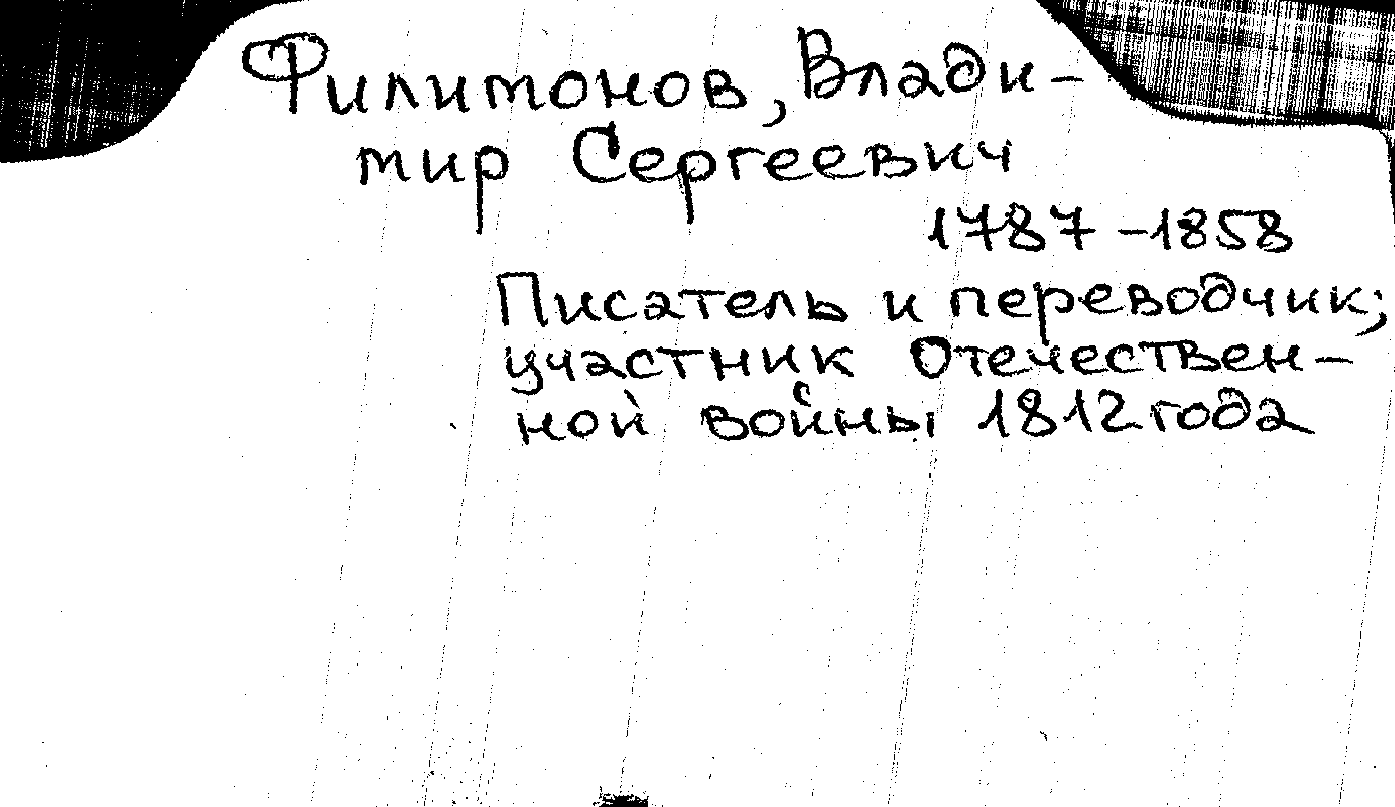 Филимонов, Влади-
мир Сергеевич
1787-1858
Писатель и переводчик;
участник Отечествен-
ной войны 1812 года